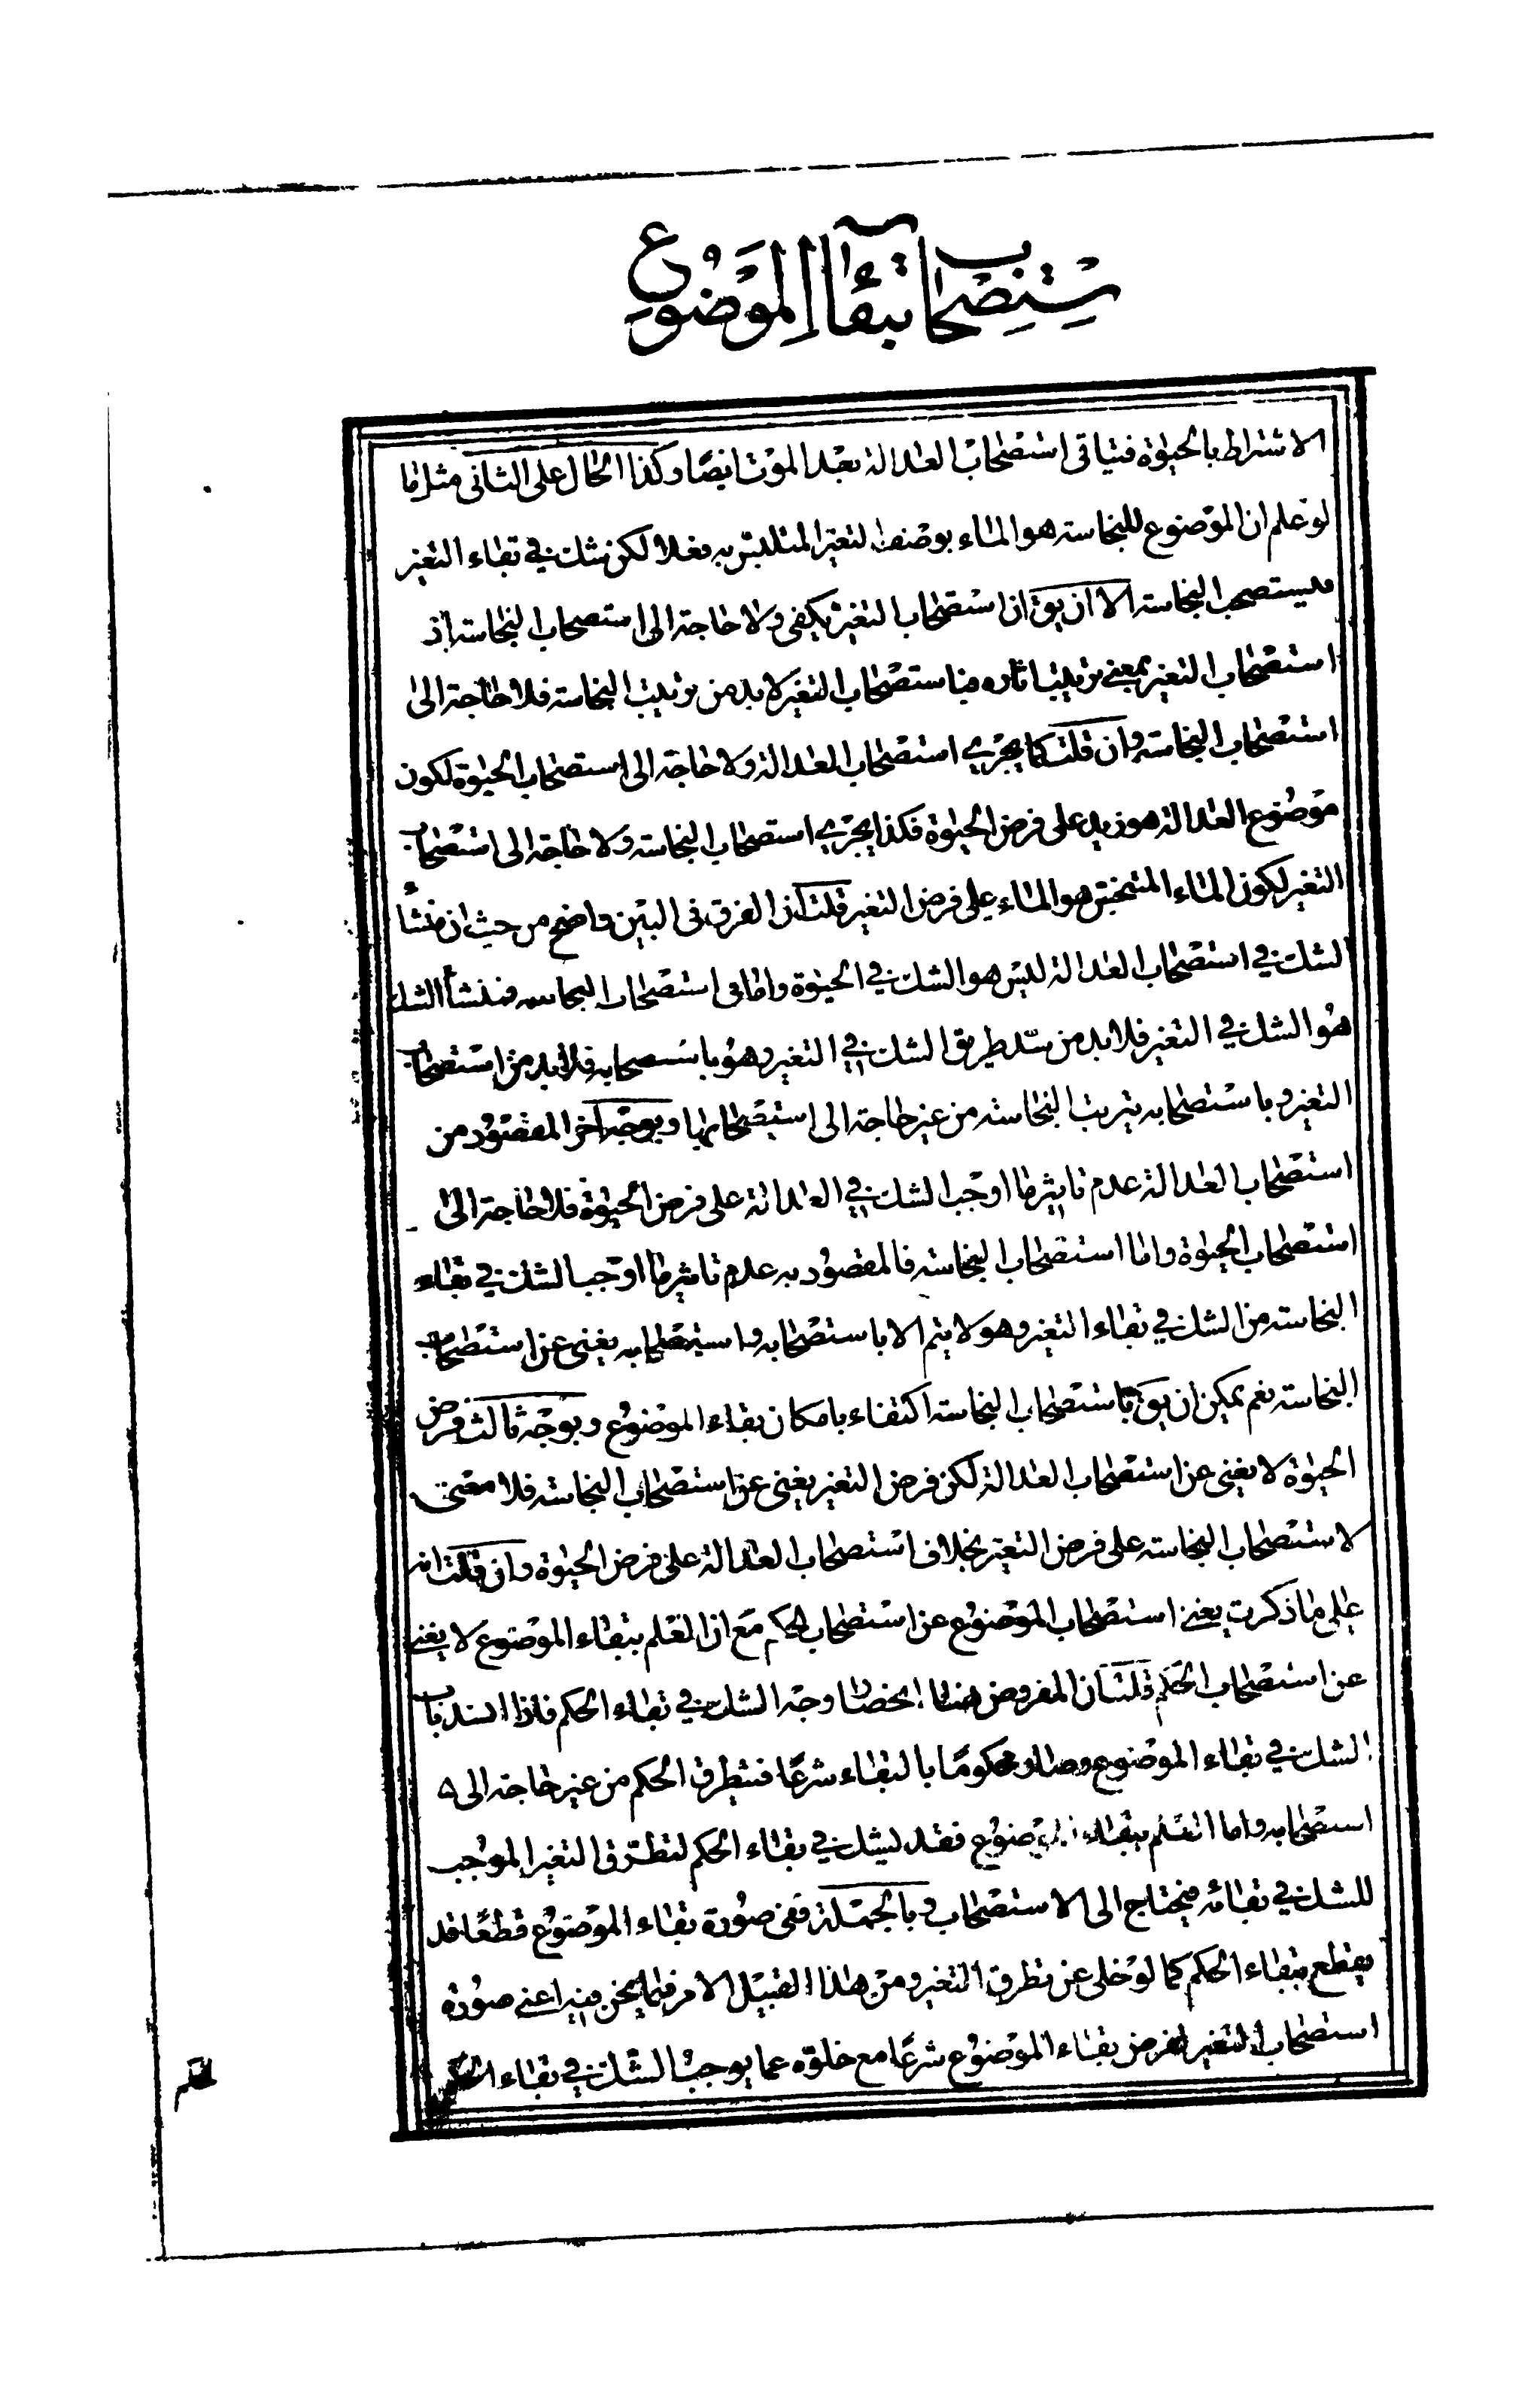 ستصحاب بقاء الموضوع
الاشتراط بالحيوة فيتاتى استصحاب العدالة بعد الموت ايضا وكذا الحال على الثانى مثل ما
لو علم ان الموضوع للنجاسة هو الماء بوصف التغير المتلبس به فعلا لكن شك في بقاء التغير
فليستصحب النجاسة الا ان يق ان استصحاب التغير يكفى ولا حاجة الى استصحاب النجاسة اذ
استصحاب التغير بمعنى ترتيب اثاره فباستصحاب التغير لا بد من ترتيب النجاسة فلا حاجة الى
استصحاب النجاسة وان قلت كما يجرى استصحاب العدالة ولا حاجة الى استصحاب الحيوة لكون
موضوع العدالة هو زيد على فرض الحيوة فكذا يجرى استصحاب النجاسة ولا حاجة الى استصحاب
التغير لكون الماء المتنجس هو الماء على فرض التغير قلت ان الفرق فى البين واضح من حيث ان منشأ
الشك في استصحاب العدالة ليس هو الشك في الحيوة واما فى استصحاب النجاسة فمنشأ الشك
هو الشك في التغير فلا بد من سد طريق الشك في التغير وهو باستصحابه فلا بد من استصحاب
التغير وباستصحابه يترتب النجاسة من غير حاجة الى استصحابها وبوجه اخر المقصود من
استصحاب العدالة عدم تاثير ما اوجب الشك في العدالة على فرض الحيوة فلا حاجة الى
استصحاب الحيوة واما استصحاب النجاسة فالمقصود به عدم تاثير ما اوجب الشك في بقاء
النجاسة من الشك في بقاء التغير وهو لا يتم الا باستصحابه واستصحابه يغنى عن استصحاب
النجاسة نعم يمكن ان يق باستصحاب النجاسة اكتفاء بامكان بقاء الموضوع وبوجه ثالث فرض
الحيوة لا يغنى عن استصحاب العدالة لكن فرض التغير يغنى عن استصحاب النجاسة فلا معنى
لاستصحاب النجاسة على فرض التغير بخلاف استصحاب العدالة على فرض الحيوة وان قلت انه
على ما ذكرت يغنى استصحاب الموضوع عن استصحاب الحكم مع ان العلم ببقاء الموضوع لا يغنى
عن استصحاب الحكم قلت ان المفروض هنا انحصار وجه الشك في بقاء الحكم فاذا انسد باب
الشك في بقاء الموضوع وصار محكوما بالبقاء شرعا فيتطرق الحكم من غير حاجة الى
استصحابه واما العلم ببقاء الموضوع فقد يشك في بقاء الحكم لتطرق التغير الموجب
للشك في بقائه فيحتاج الى الاستصحاب وبالجملة ففى صورة بقاء الموضوع قطعا قد
يقطع ببقاء الحكم كما لو خلى عن تطرق التغير ومن هذا القبيل الامر فيما نحن فيه اعنى صورة
استصحاب التغير لفرض بقاء الموضوع شرعا مع خلوه عما يوجب الشك في بقاء الحكم